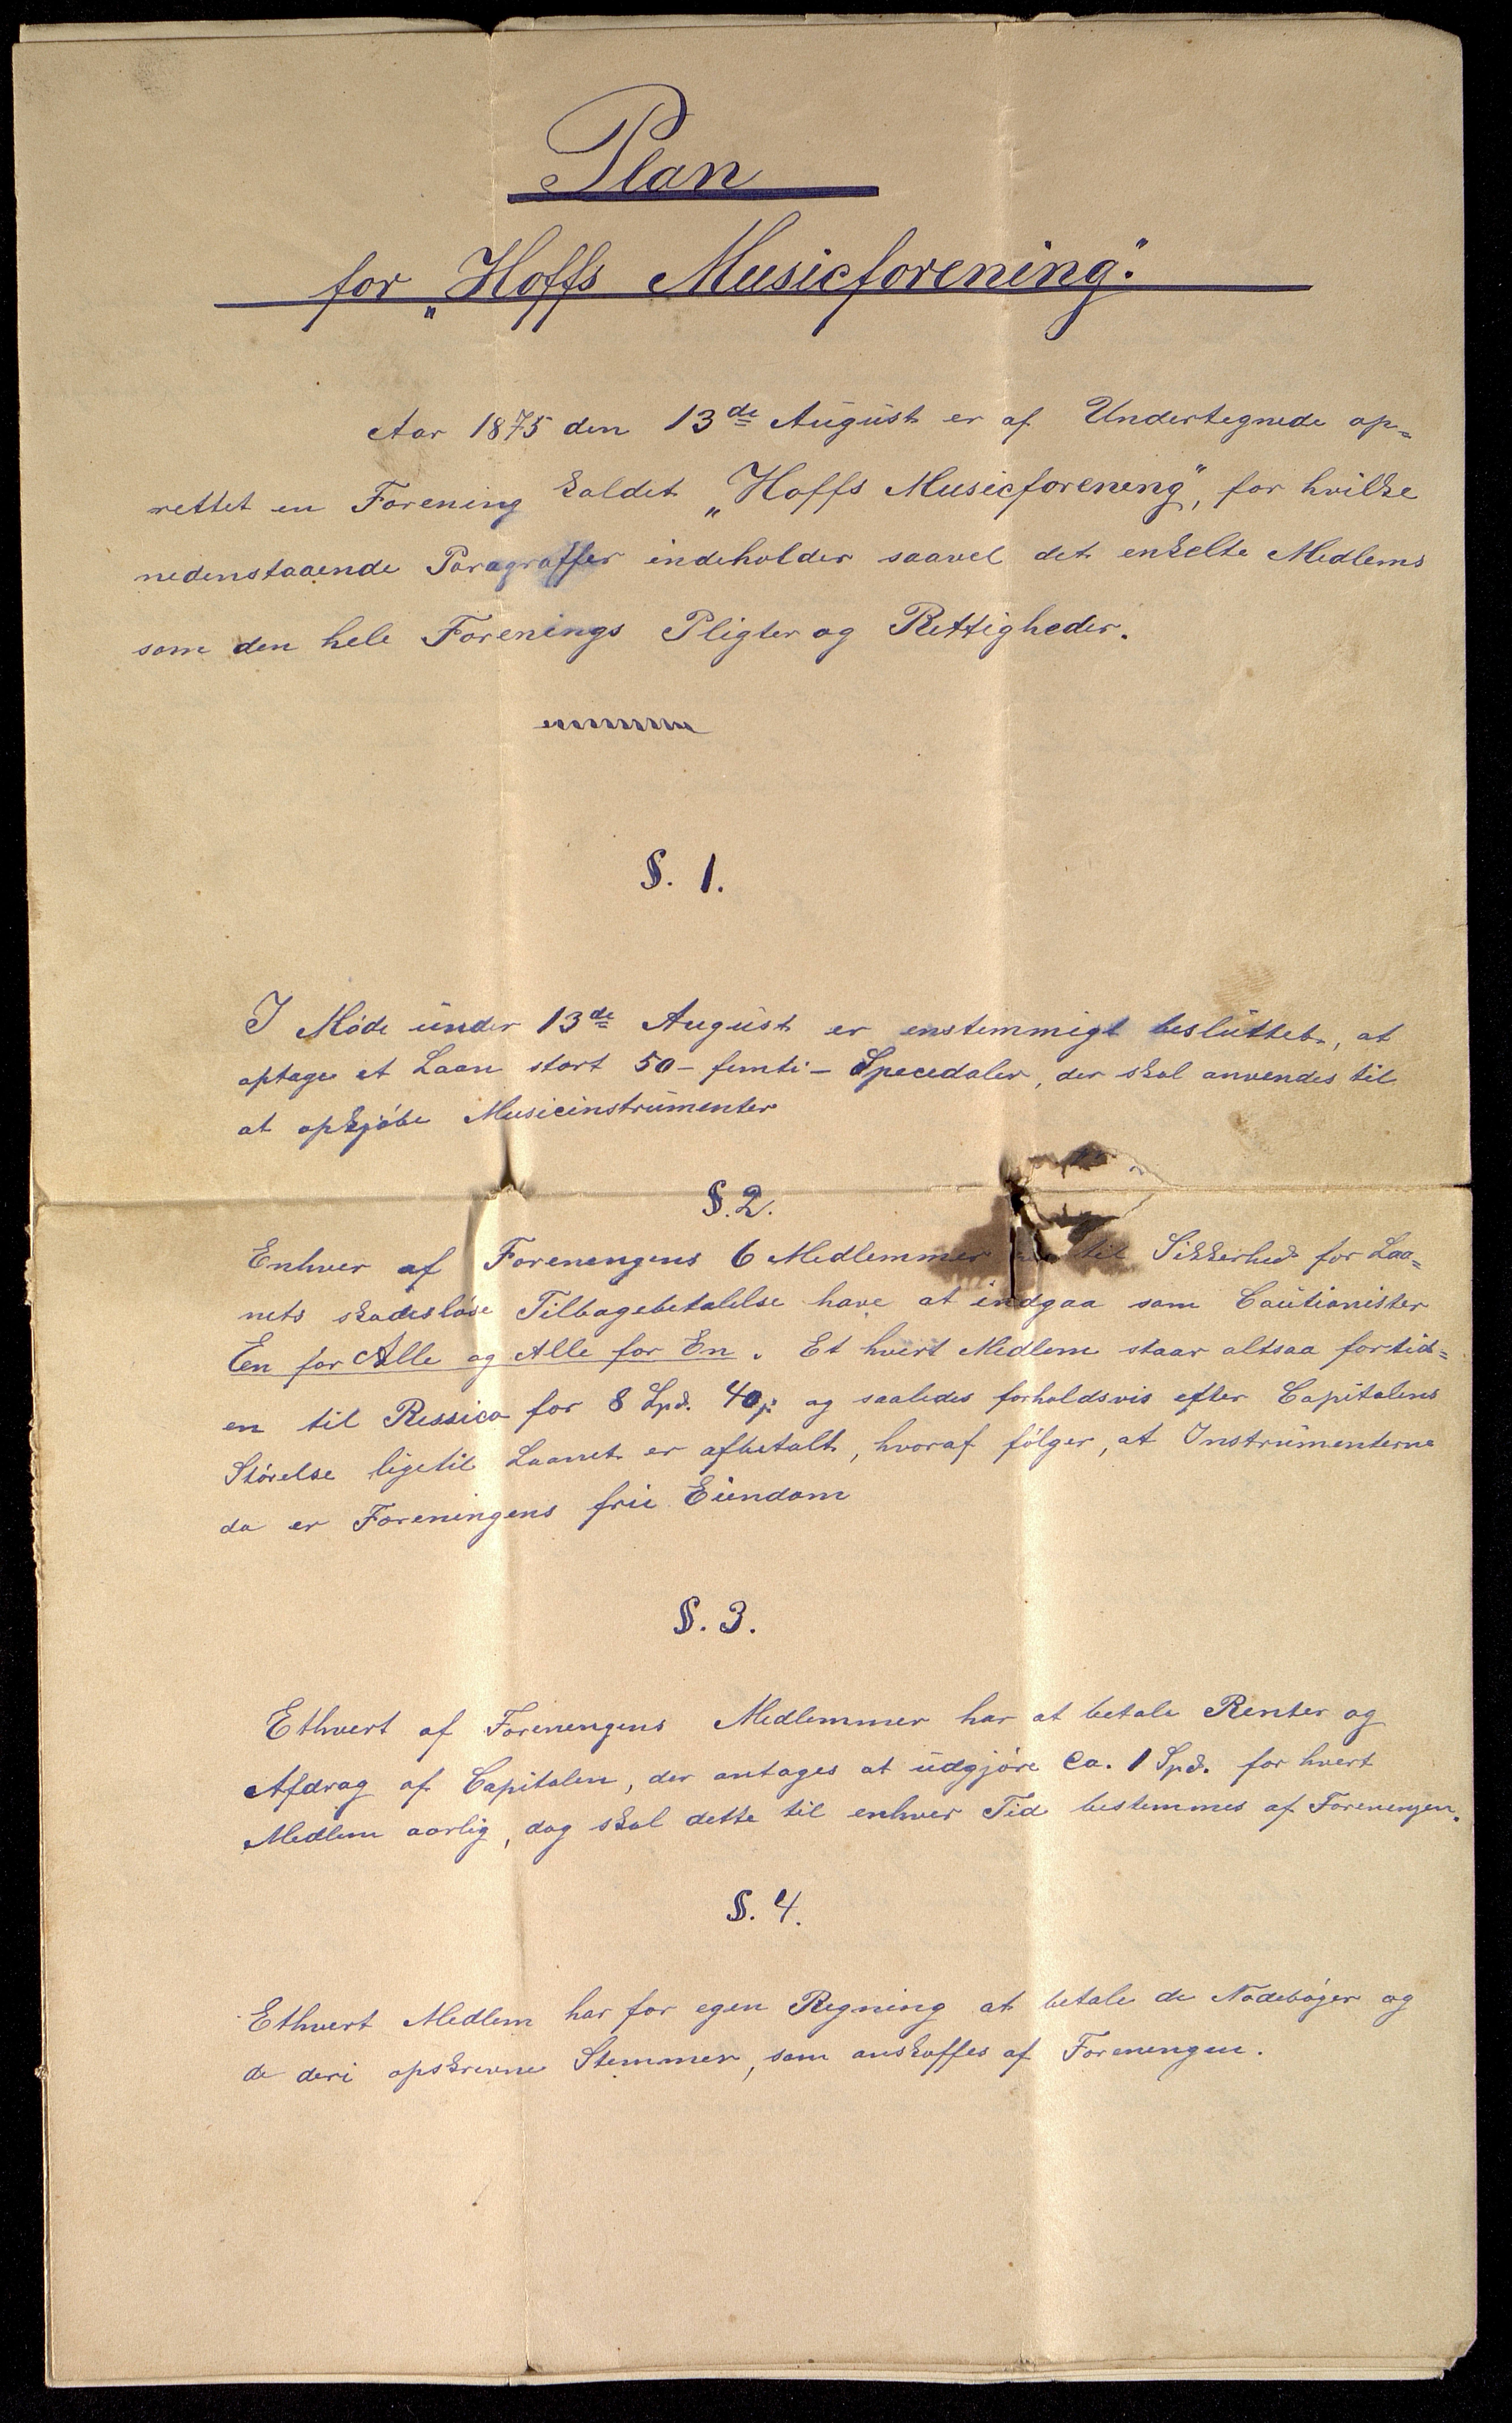 Plan
for „Hoffs Musicforening".
Aar 1875 den 13de August er af Undertegnede op=
rettet en Forening kaldet „Hoffs Musicforening", for hvilke
nedenstaaende Paragraffer indeholder saavel det enkelte Medlems
som den hele Forenings Pligter og Rettigheder.
§. 1.
I Møde under 13de August er enstemmigt besluttet, at
optage et Laan stort 50 - femti - Speciedaler, der skal anvendes til
at opkjøbe Musicinstrumenter
§. 2.
Enhver af Foreningens 6 Medlemmer til Sikkerhed for Laa=
nets skadesløse Tilbagebetalelse have at indgaa som Cautionister
Een for Alle og Alle for En. Et hvert Medlem staar altsaa fortid=
en til Ressico for 8 Spd. 40 og saaledes forholdsvis efter Capitalens
Störelse ligetil Laanet er afbetalt, hvoraf følger, at Instrumenterne
da er Foreningens frie Eiendom
§. 3.
Ethvert af Foreningens Medlemmer har at betale Renter og
Afdrag af Capitalen, der antages at udgjøre Ca. 1 Spd. for hvert
Medlem aarlig, dog skal dette til enhver Tid bestemmes af Foreningen.
§. 4.
Ethvert Medlem har for egen Regning at betale de Nodebøger og
de deri opskrevne Stemmer, som anskaffes af Foreningen.